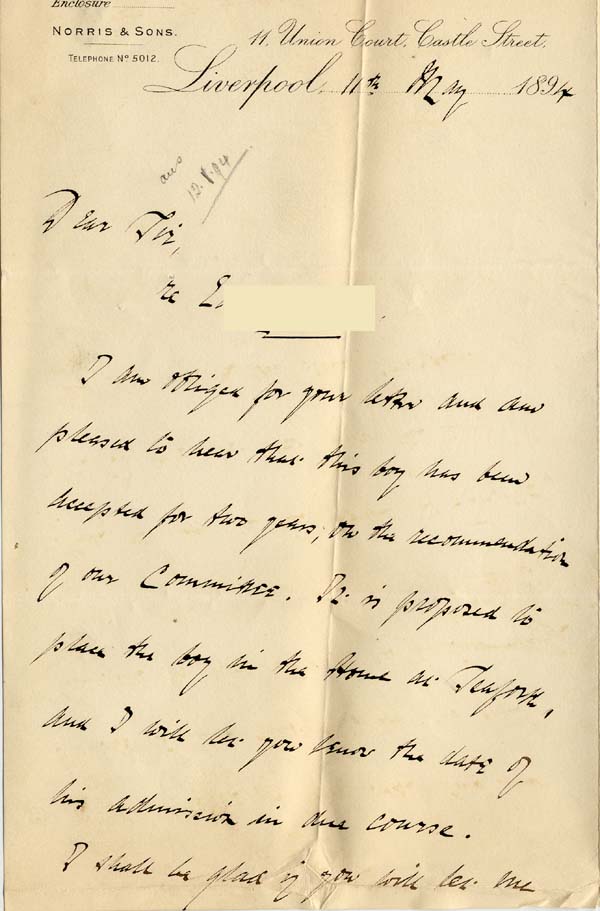 Enclosure
NORRIS & SONS.
TELEPHONE Nº 5012.
11, Union Court, Castle Street,
Liverpool, 11th May 1894
ans
12.5.94
Dear Sir,
re E
I am obliged for your letter and am
pleased to hear that this boy has been
accepted for two years, on the recommendation
of our Committee. It is proposed to
place the boy in the Home at Seaforth,
and I will let you know the date of
his admission in due course.
I shall be glad if you will let me